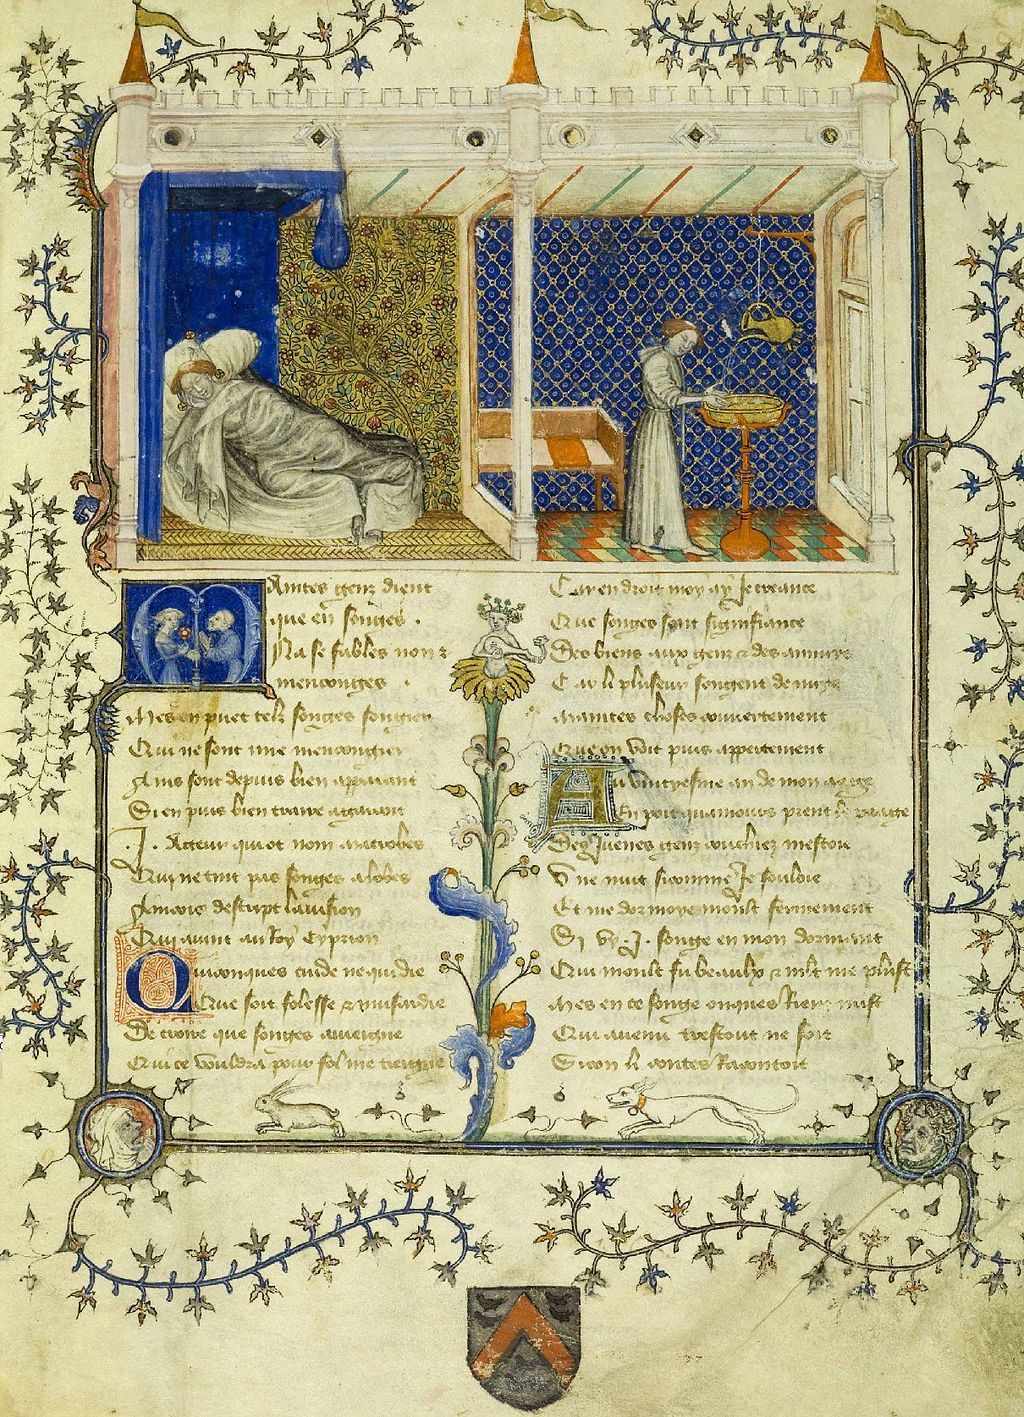 Maintes genz dient
que en songes .
Na se fables non &
menconges .
Mes en puet telz songes songier
Qui ne sont mie mencongier
Ains sont depuis bien apparant
Si en puis bien traire a garant
.I. Acteur qui ot nom macrobes
Qui ne tint pas songes a lobes
Ancois descript la vision
Qui avint au Roy Cyprion
Quiconques cuide ne qui die
Que soit folesse & musardie
De croire que songes aviegne
Qui ce vouldra pour fol me tiengne
Car en droit moy ay Je creance
Que songes sont signifiance
Des biens aux genz & des annuiz
Car li pluseur songent de nuiz
Maintes choses couvertement
Que on voit puis appertement
Au vintyesme an de mon aage
En point quamours prent le paage
Des Juenes genz couchiez mestoie
Une nuit si comme Je souloie
Et me dormoye moult forment
Si vy .I. songe en mon dormant
Qui moult fu beaulx & mlt me plust
Mes en ce songe onques Riens nust
Qui avenu trestout ne soit
Si con li contes Racontoit